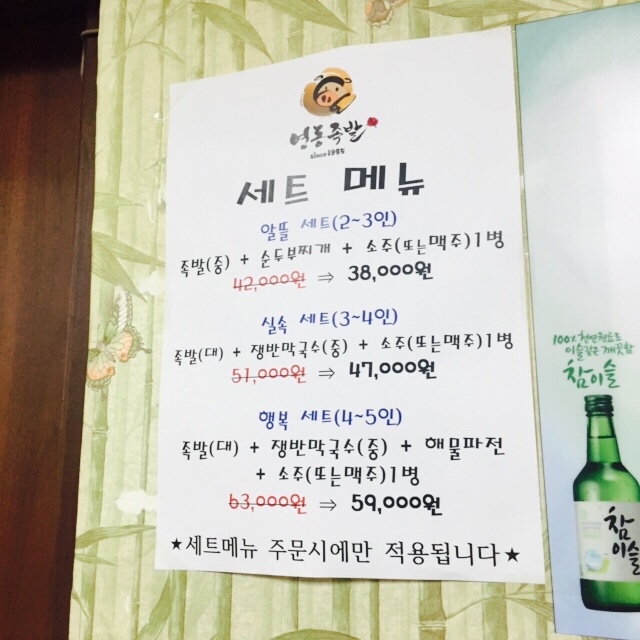 영동족발
since1985
세트 메뉴
알뜰 세트(2~3인)
족발(중) + 순두부찌개 + 소주(또는맥주)1병
42,000원 ⇒ 38,000원
실속 세트(3~4인)
족발(대) + 쟁반막국수(중) + 소주(또는맥주)1병
51,000원 ⇒ 47,000원
행복 세트(4~5인)
족발(대) + 쟁반막국수(중) + 해물파전
+ 소주(또는맥주)1병
63,000원 ⇒ 59,000원
★세트메뉴 주문시에만 적용됩니다★
100% 천연원료로
이슬같은 깨끗함
참이슬
참이슬